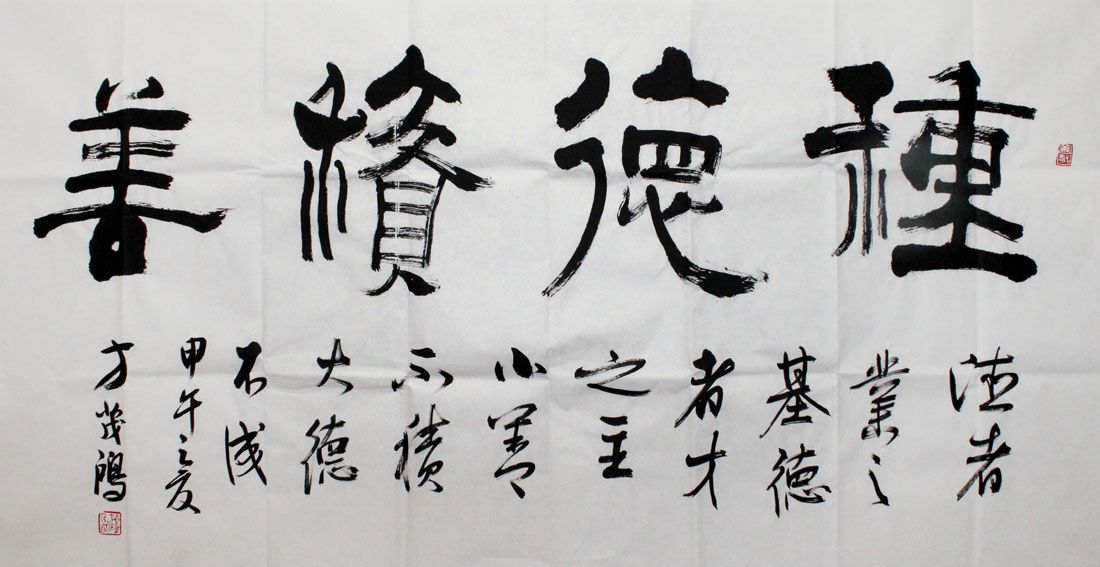 種德積善
德者
業之
基德
者才
之主
小善
不積
大德
不成
甲午之夏
方茂鴻